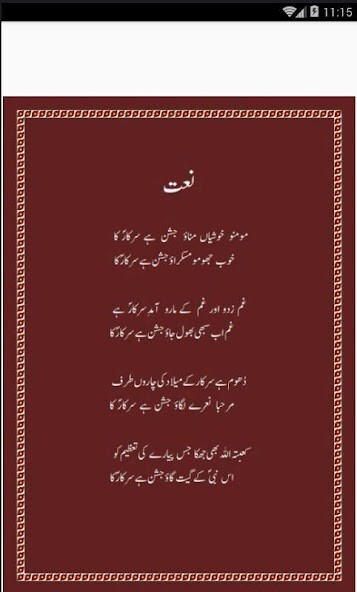 11:15
نعت
مومنو خوشیاں مناؤ جشن ہے سرکارؐ کا
خوب جھومو مسکراؤ جشن ہے سرکارؐ کا
غم زدو اور غم کے مارو آمدِ سرکارؐ ہے
غم اب سبھی بھول جاؤ جشن ہے سرکارؐ کا
دُھوم ہے سرکار کے میلاد کی چاروں طرف
مرحبا نعرے لگاؤ جشن ہے سرکارؐ کا
کعبتہ اللہ بھی جھکا جس پیارے کی تعظیم کو
اس نبیؐ کے گیت گاؤ جشن ہے سرکارؐ کا